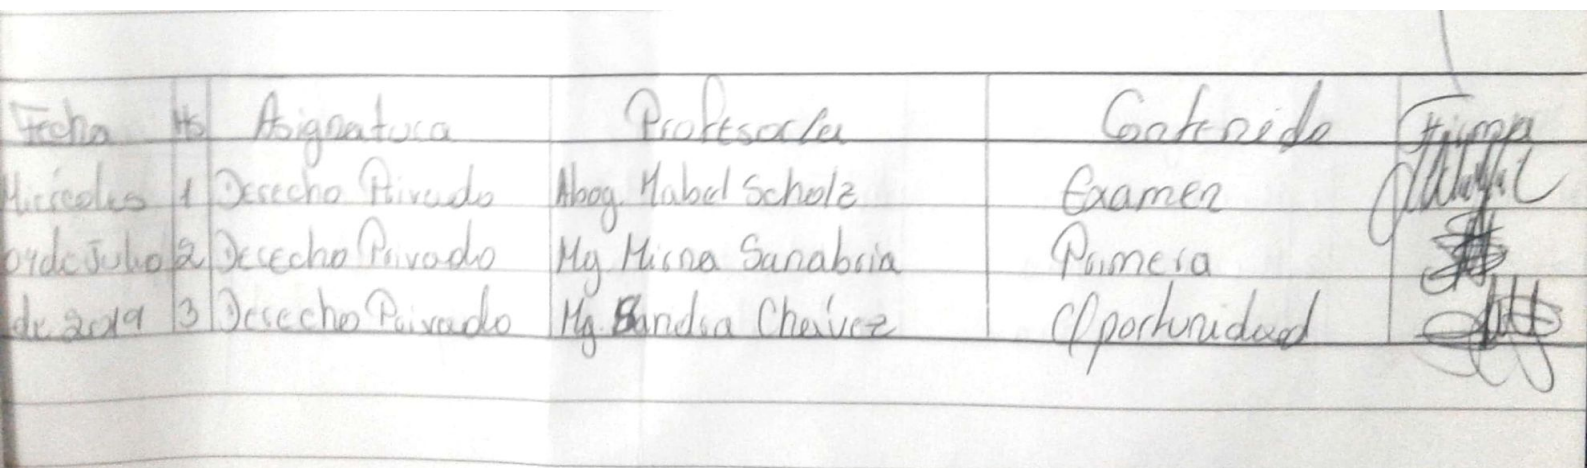 Fecha Hs Asignatura Profesor/a Contenido Firma
Miércoles 1 Derecho Privado Abog. Mabel Scholz Examen
de Julio 2 Derecho Privado Mg Mirna Sanabria Primera
de 2019 3 Derecho Privado Mg. Sandra Chávez Oportunidad